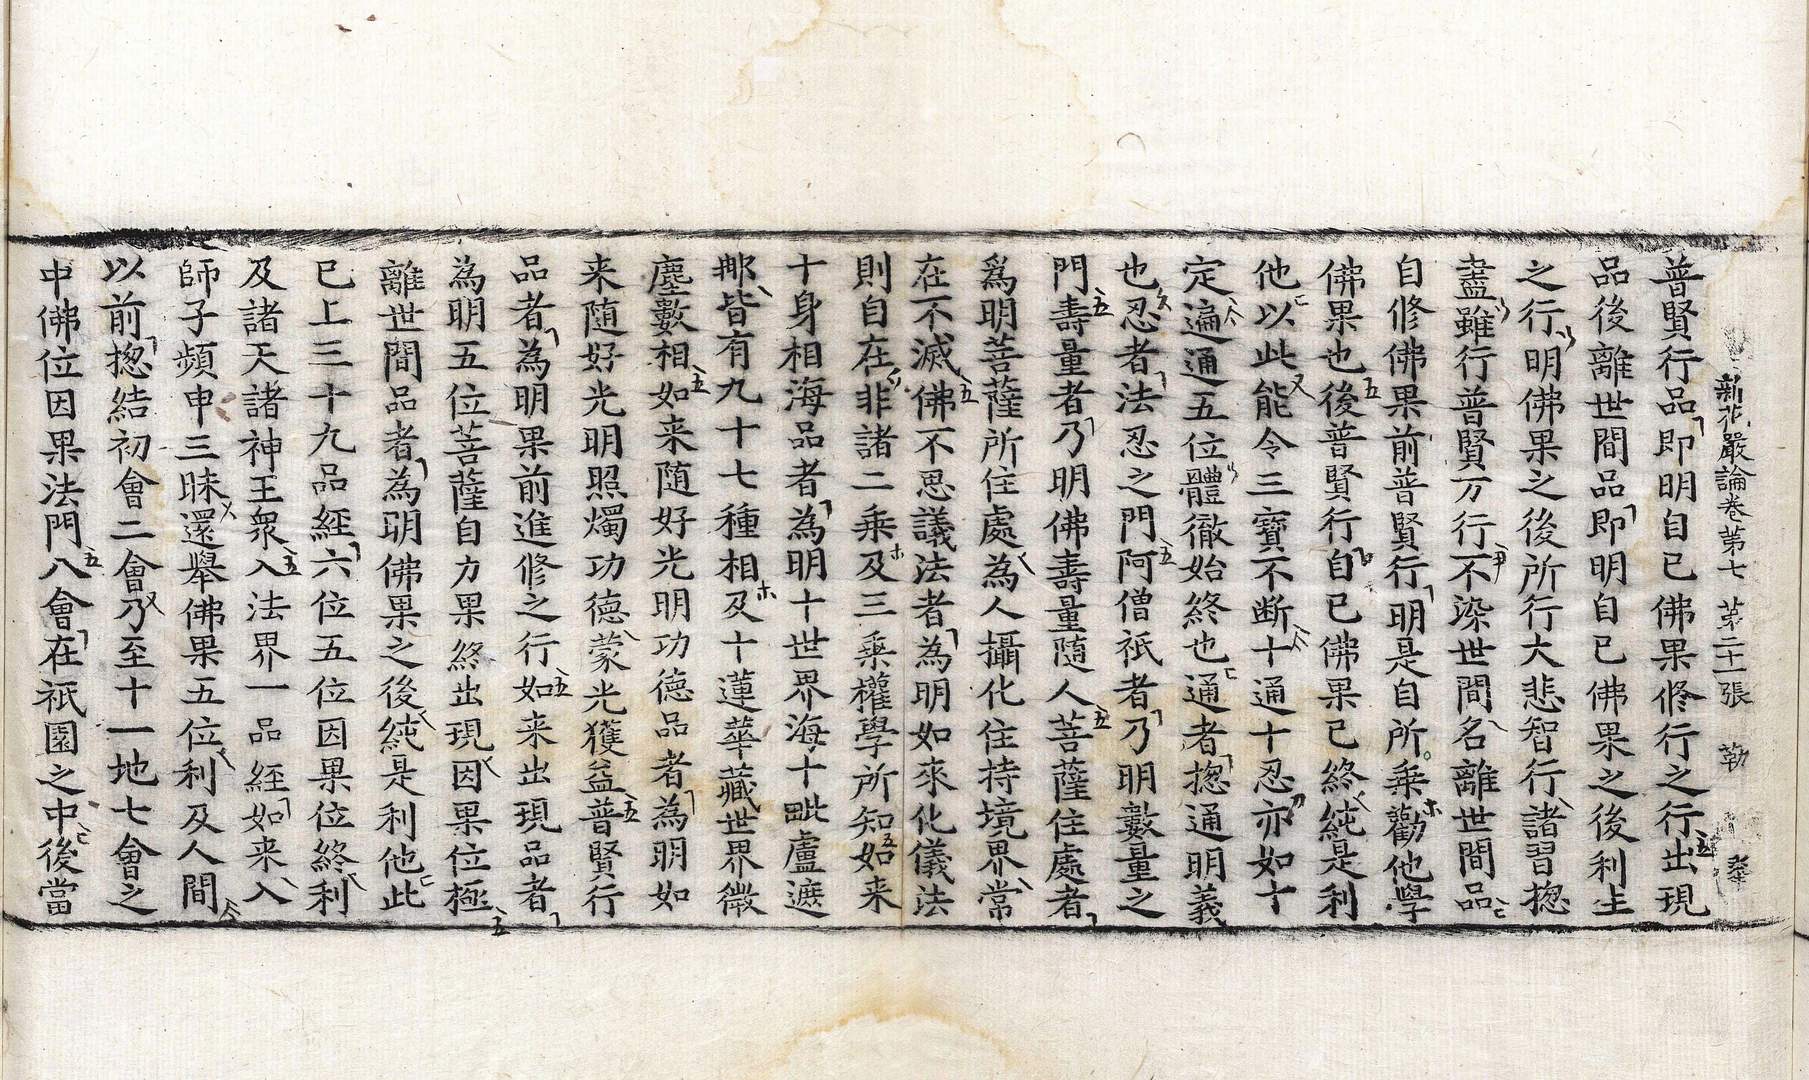 新花嚴論卷第七 第二十一張 勒
普賢行品即明自已佛果修行之行出現
品後離世間品即明自已佛果之後利生
之行明佛果之後所行大悲智行諸習揔
盡雖行普賢万行不染世間名離世間品
自修佛果前普賢行明是自所乘勸他學
佛果也後普賢行自已佛果已終純是利
他以此能令三寶不断十通十忍亦如十
定遍通五位體徹始終也通者揔通明義
也忍者法忍之門阿僧祇者乃明數量之
門壽量者乃明佛壽量随人菩薩住處者
爲明菩薩所住處為人攝化住持境界常
在不滅佛不思議法者為明如來化儀法
則自在非諸二乘及三乘權學所知如来
十身相海品者為明十世界海十毗盧遮
那皆有九十七種相及十蓮華藏世界微
塵數相如来随好光明功德品者為明如
来随好光明照燭功德蒙光獲益普賢行
品者為明果前進修之行如来出現品者
為明五位菩薩自力果終出現因果位極
離世間品者為明佛果之後純是利他此
已上三十九品經六位五位因果位終利
及諸天諸神王衆入法界一品經如来入
師子頻申三昧還舉佛果五位利及人間
以前揔結初會二會乃至十一地七會之
中佛位因果法門八會在祇園之中後當